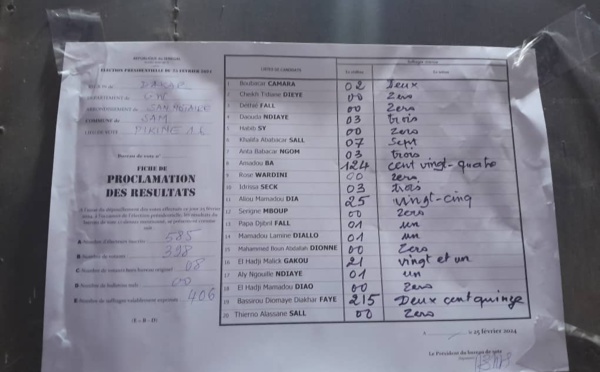 REPUBLIQUE DU SENEGAL
ELECTION PRESIDENTIELLE DU 25 FEVRIER 2024
DAKAR
DEPARTEMENT DE
COMMUNE DE
SAM
LIEU DE VOTE PIKINE
Bureau de vote n°
FICHE DE
PROCLAMATION
DES RESULTATS
A Nombre d'électeurs inscrits 585
B Nombre de votants 398
C 08
D Nombre de bulletins nuls 00
E Nombre de suffrages valablement exprimés 406
(E = B - D)
LISTES DE CANDIDATS
Suffrages obtenus
En chiffres En lettres
1 Boubacar CAMARA 02 Deux
2 Cheikh Tidiane DIEYE 00 Zero
3 Déthié FALL 00 Zero
4 Daouda NDIAYE 03 trois
5 Habib SY 00 Zero
6 Khalifa Ababacar SALL 07 Sept
7 Anta Babacar NGOM 03 trois
8 Amadou BA 124 cent vingt-quatre
9 Rose WARDINI 00 Zero
10 Idrissa SECK 03 trois
11 Aliou Mamadou DIA 25 vingt-cinq
12 Serigne MBOUP 00 Zero
13 Papa Djibril FALL 01 un
14 Mamadou Lamine DIALLO 01 un
15 Mahammed Boun Abdallah DIONNE 00 Zero
16 El Hadji Malick GAKOU 21 vingt et un
17 Aly Ngouille NDIAYE 01 un
18 El Hadji Mamadou DIAO 00 Zero
19 Bassirou Diomaye Diakhar FAYE 215 Deux cent quinze
20 Thierno Alassane SALL 00 Zero
25 février 2024
Le Président du bureau de vote